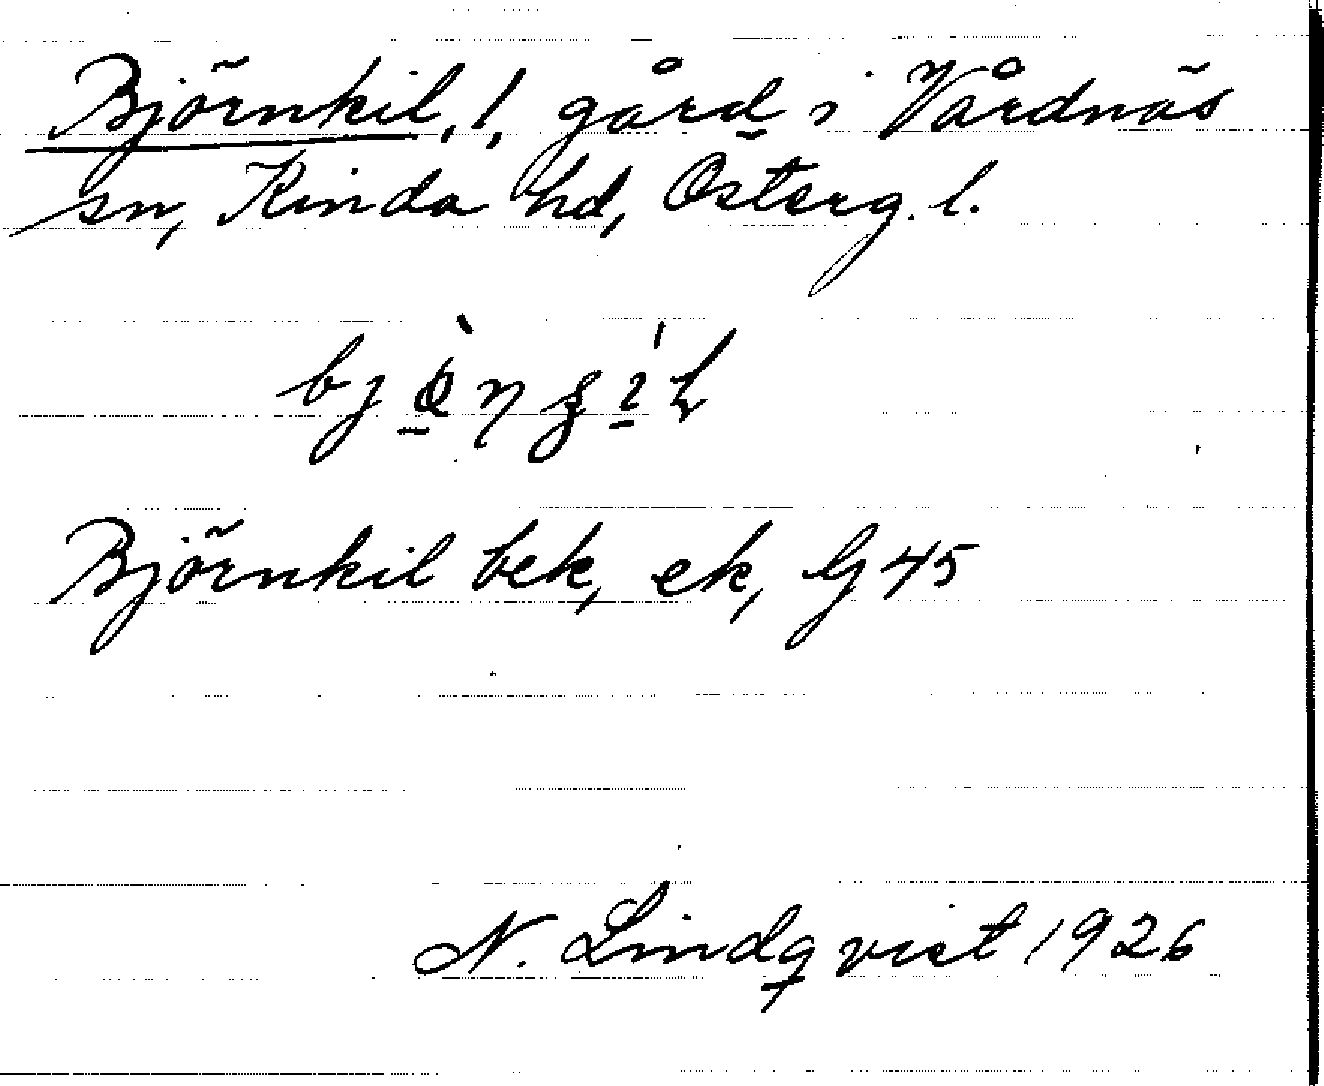 Björnkil, 1, gård i Vårdnäs
sn, Kinda hd, Österg. l.
Björnkil bek, ek, G 45
N. Lindqvist 1926